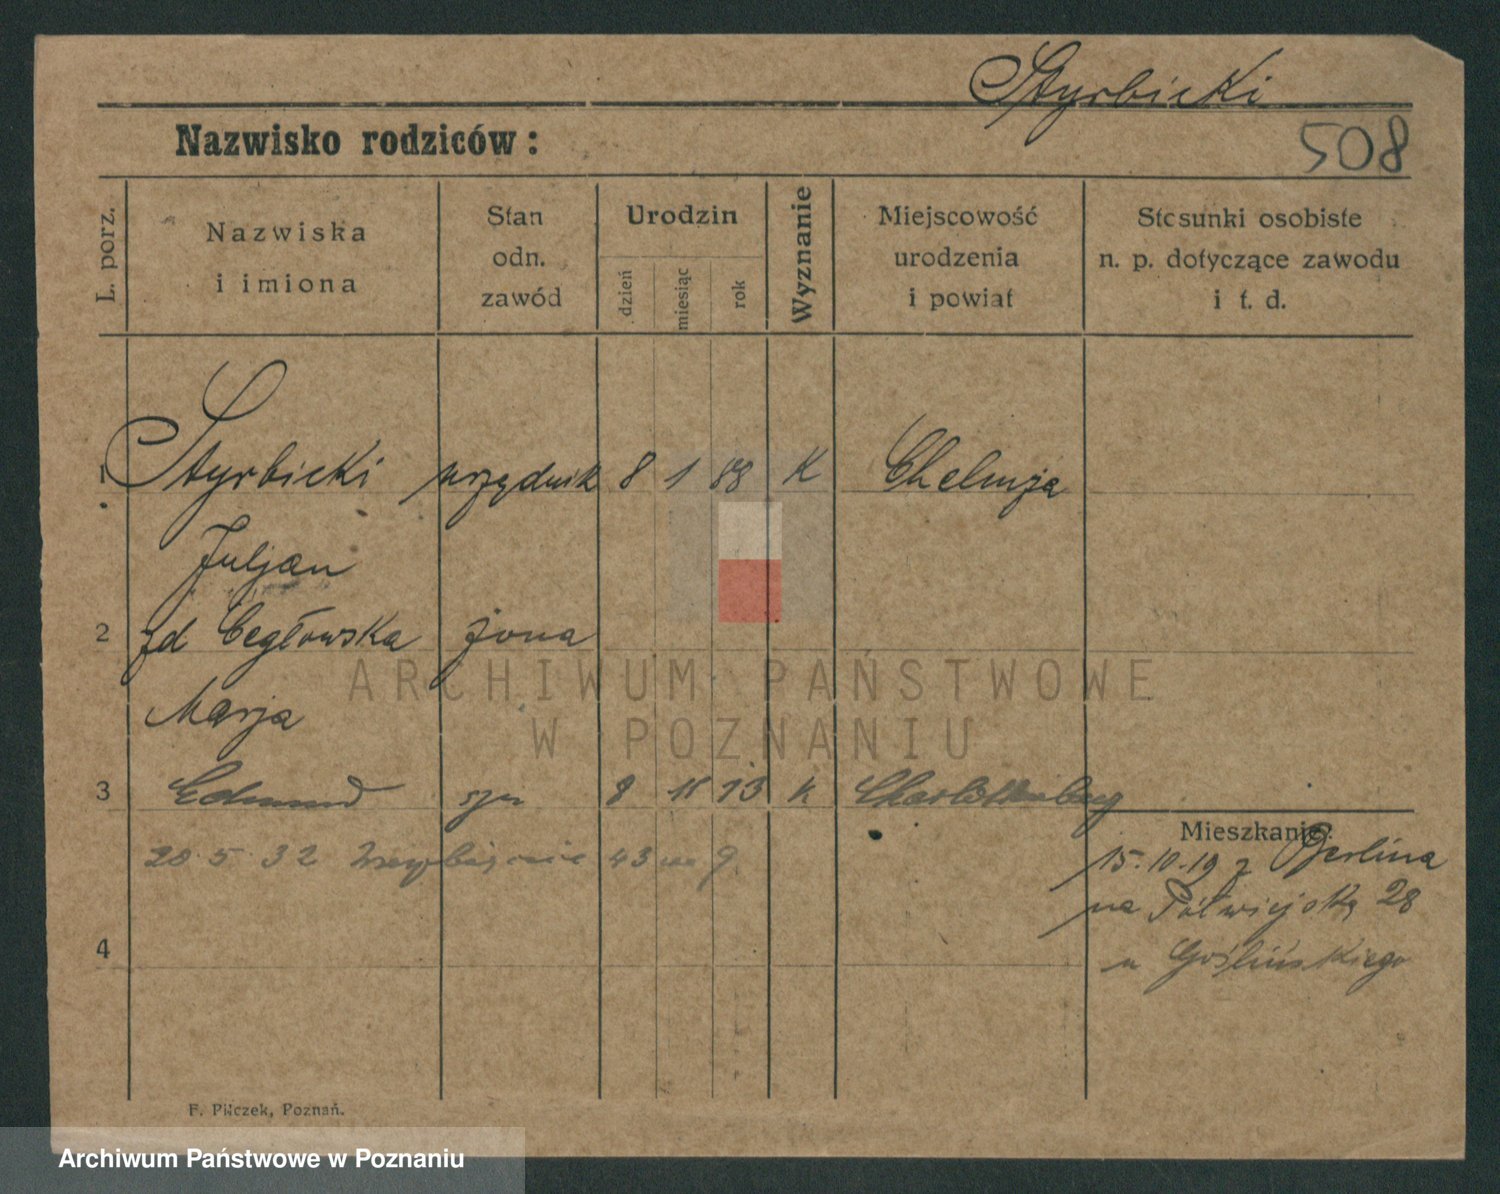 Styrbicki
Nazwisko rodziców:
508
L. porz.
Nazwiska
i imiona
Stan
odn.
zawód
Urodzin
dzień
miesiąc
rok
Wyznanie
Miejscowość
urodzenia
i powiat
Stosunki osobiste
n. p. dotyczące zawodu
i t. d.
1 Styrbicki urzędnik 8 1 88 K Chelmża
Juljan
2 zd Cegłowska żona
Marja
ARCHIWUM PAŃSTWOWE
W POZNANIU
3 Edmund syn 8 13 K Charlottenburg
Mieszkanie:
20.5.32 43
15.10.19 z Berlina
na Półwiejską 28
4
u Goślińskiego
F. Pilczek, Poznań.
Archiwum Państwowe w Poznaniu